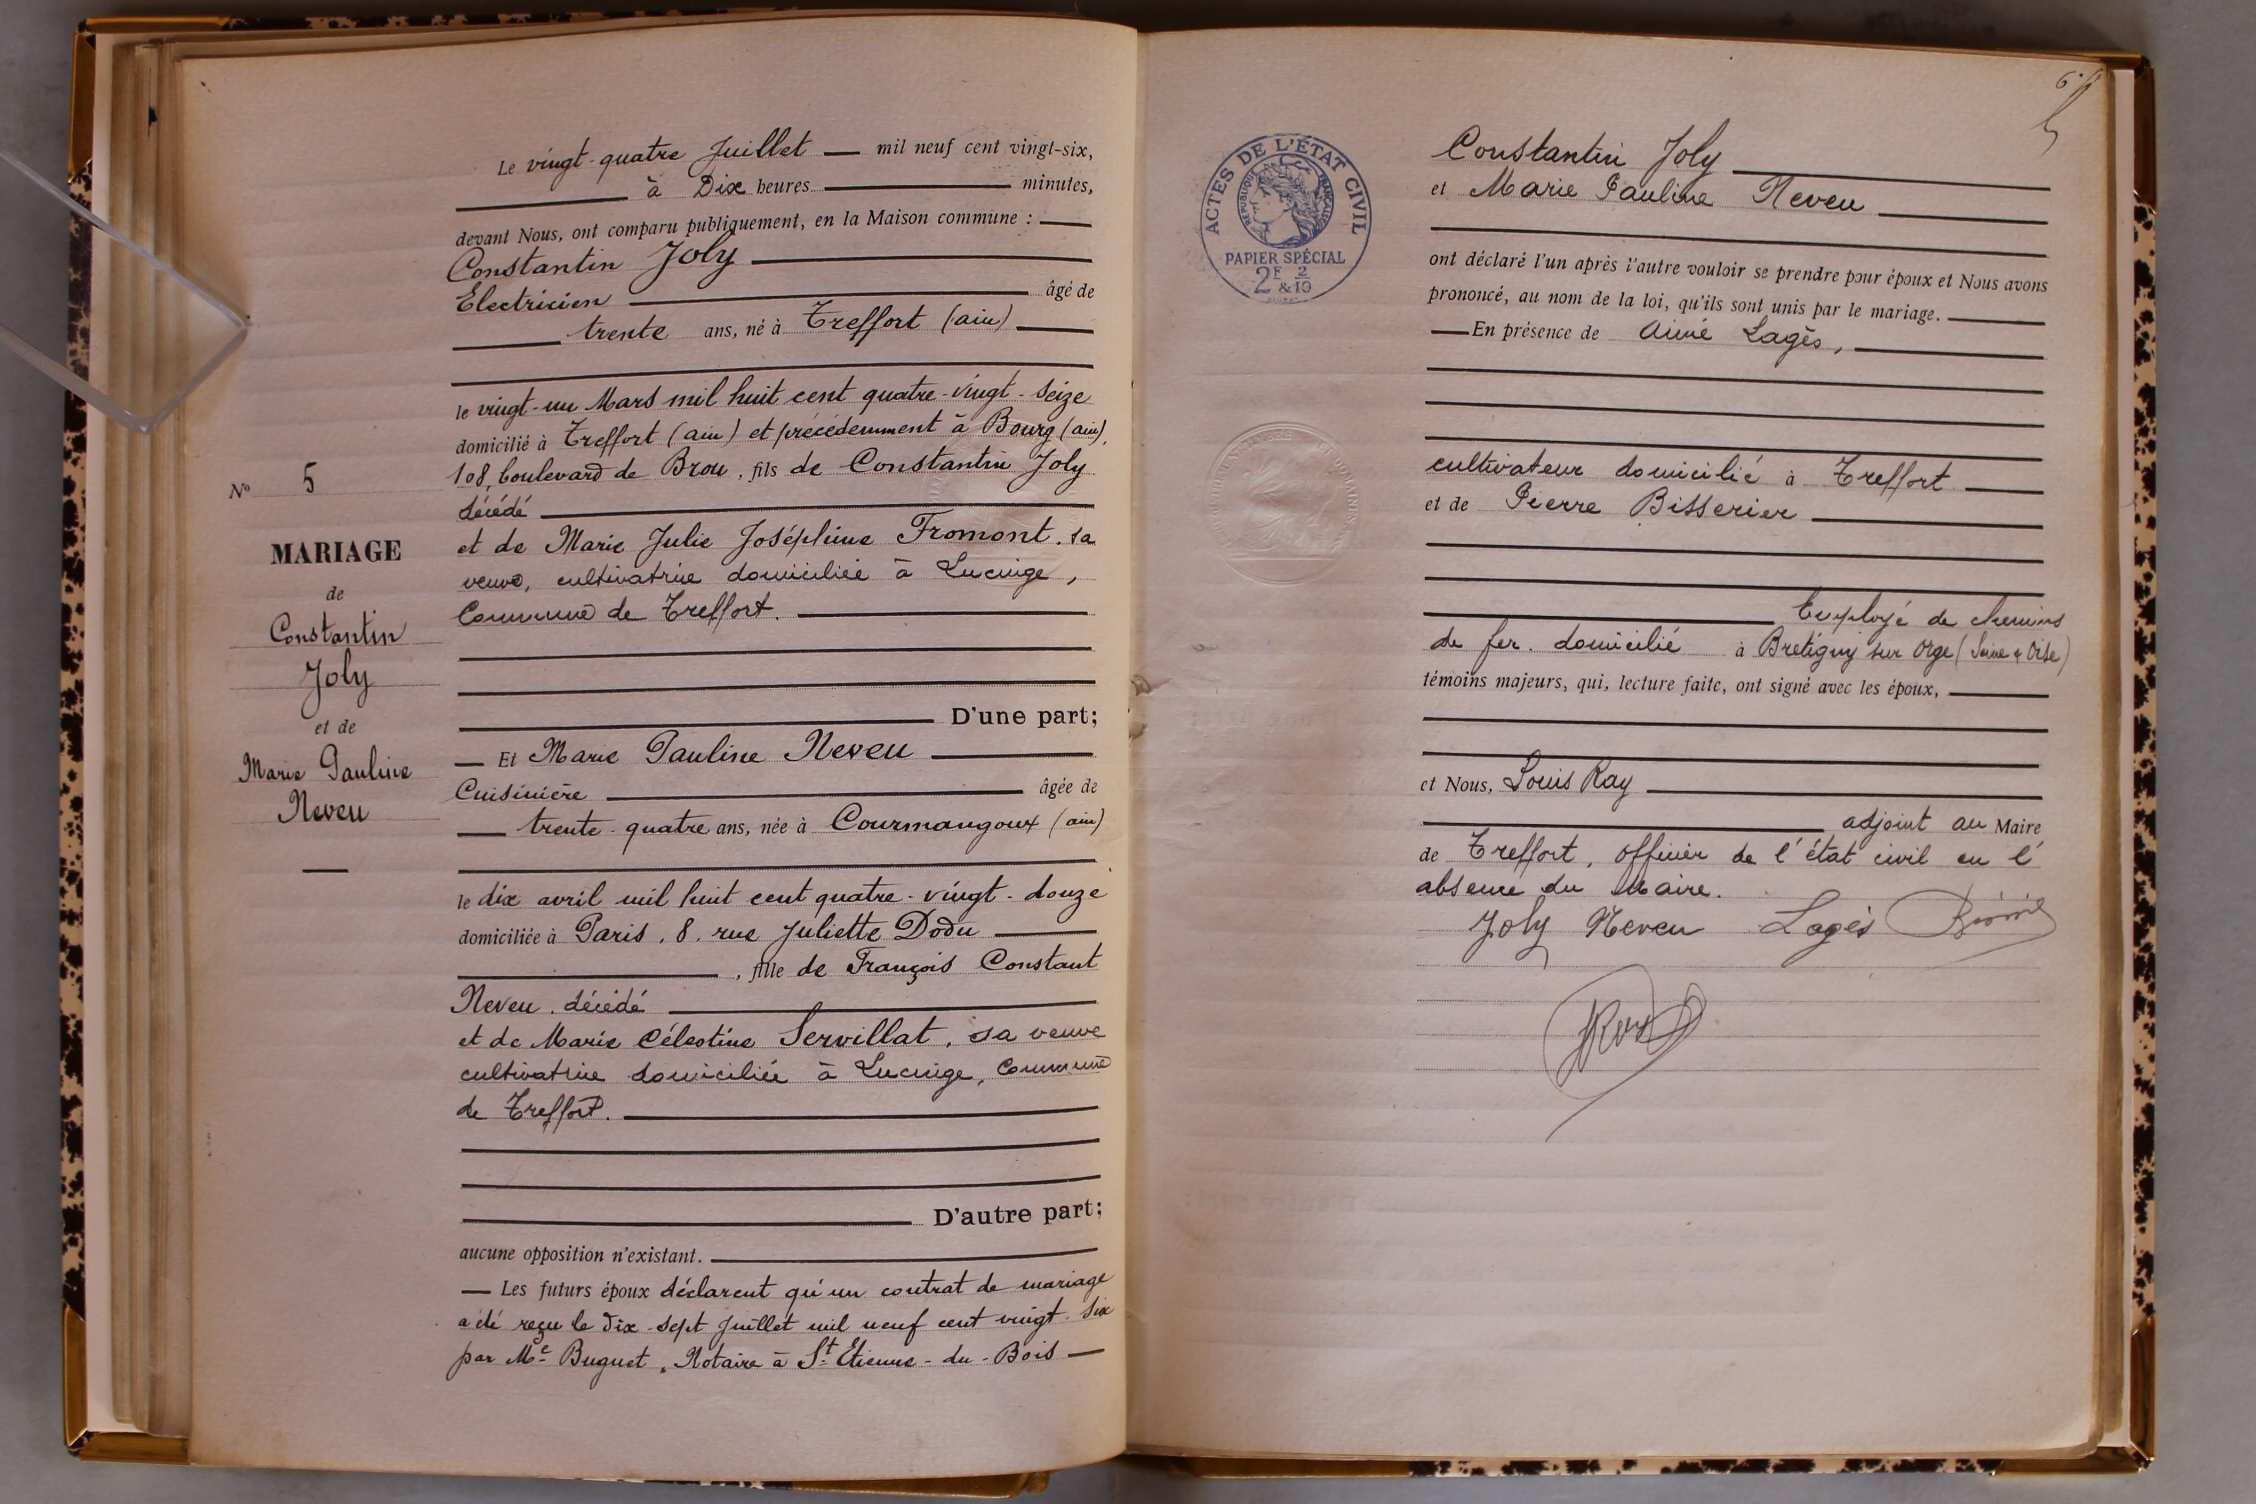 Le vingt-quatre Juillet mil neuf cent vingt-six,
à Dix heures minutes,
devant Nous, ont comparu publiquement, en la Maison commune :
Constantin Joly
Electricien âgé de
trente ans, né à Treffort (ain)
le vingt-un Mars mil huit cent quatre-vingt-seize
domicilié à Treffort (ain) et précédemment à Bourg (ain),
108, boulevard de Brou, fils de Constantin Joly
décédé
et de Marie Julie Joséphine Fromont, sa
veuve, cultivatrice domiciliée à Lucinge,
Commune de Treffort.
D'une part;
Et Marie Pauline Neveu
Cuisinière âgée de
trente-quatre ans, née à Courmangoux (ain)
le dix avril mil huit cent quatre-vingt-douze
domiciliée à Paris, 8, rue Juliette Dodu
, fille de François Constant
Neveu, décédé
et de Marie Célestine Servillat, sa veuve
cultivatrice domiciliée à Lucinge, Commune
de Treffort.
D'autre part;
aucune opposition n'existant.
Les futurs époux déclarent qu'un contrat de mariage
a été reçu le dix-sept Juillet mil neuf cent vingt-six
par Me Buguet, Notaire à St Etienne-du-Bois
No 5
MARIAGE
de
Constantin
Joly
et de
Marie Pauline
Neveu
ACTES DE L'ÉTAT CIVIL
RÉPUBLIQUE FRANÇAISE
PAPIER SPÉCIAL
2F & 2/10
Constantin Joly
et Marie Pauline Neveu
ont déclaré l'un après l'autre vouloir se prendre pour époux et Nous avons
prononcé, au nom de la loi, qu'ils sont unis par le mariage.
En présence de Aimé Lagès,
cultivateur domicilié à Treffort
et de Pierre Bisserier
Employé de chemins
de fer. domicilié à Bretigny sur Orge (Seine & Oise)
témoins majeurs, qui, lecture faite, ont signé avec les époux,
et Nous, Louis Ray
adjoint au Maire
de Treffort, officier de l'état civil en l'
absence du Maire.
Joly Neveu Lagès